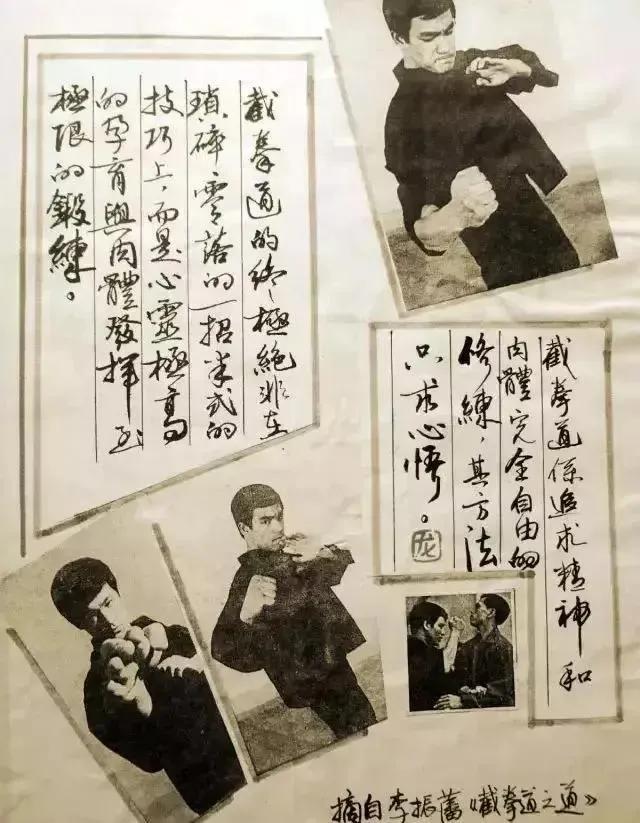 截拳道的終極絕非在
瑣碎零落的一招半式的
技巧上，而是心靈極高
的孕育與肉體發揮至
極限的鍛練。
截拳道係追求精神和
肉體完全自由的
修練，其方法
只求心悟。
龙
摘自李振藩《截拳道之道》